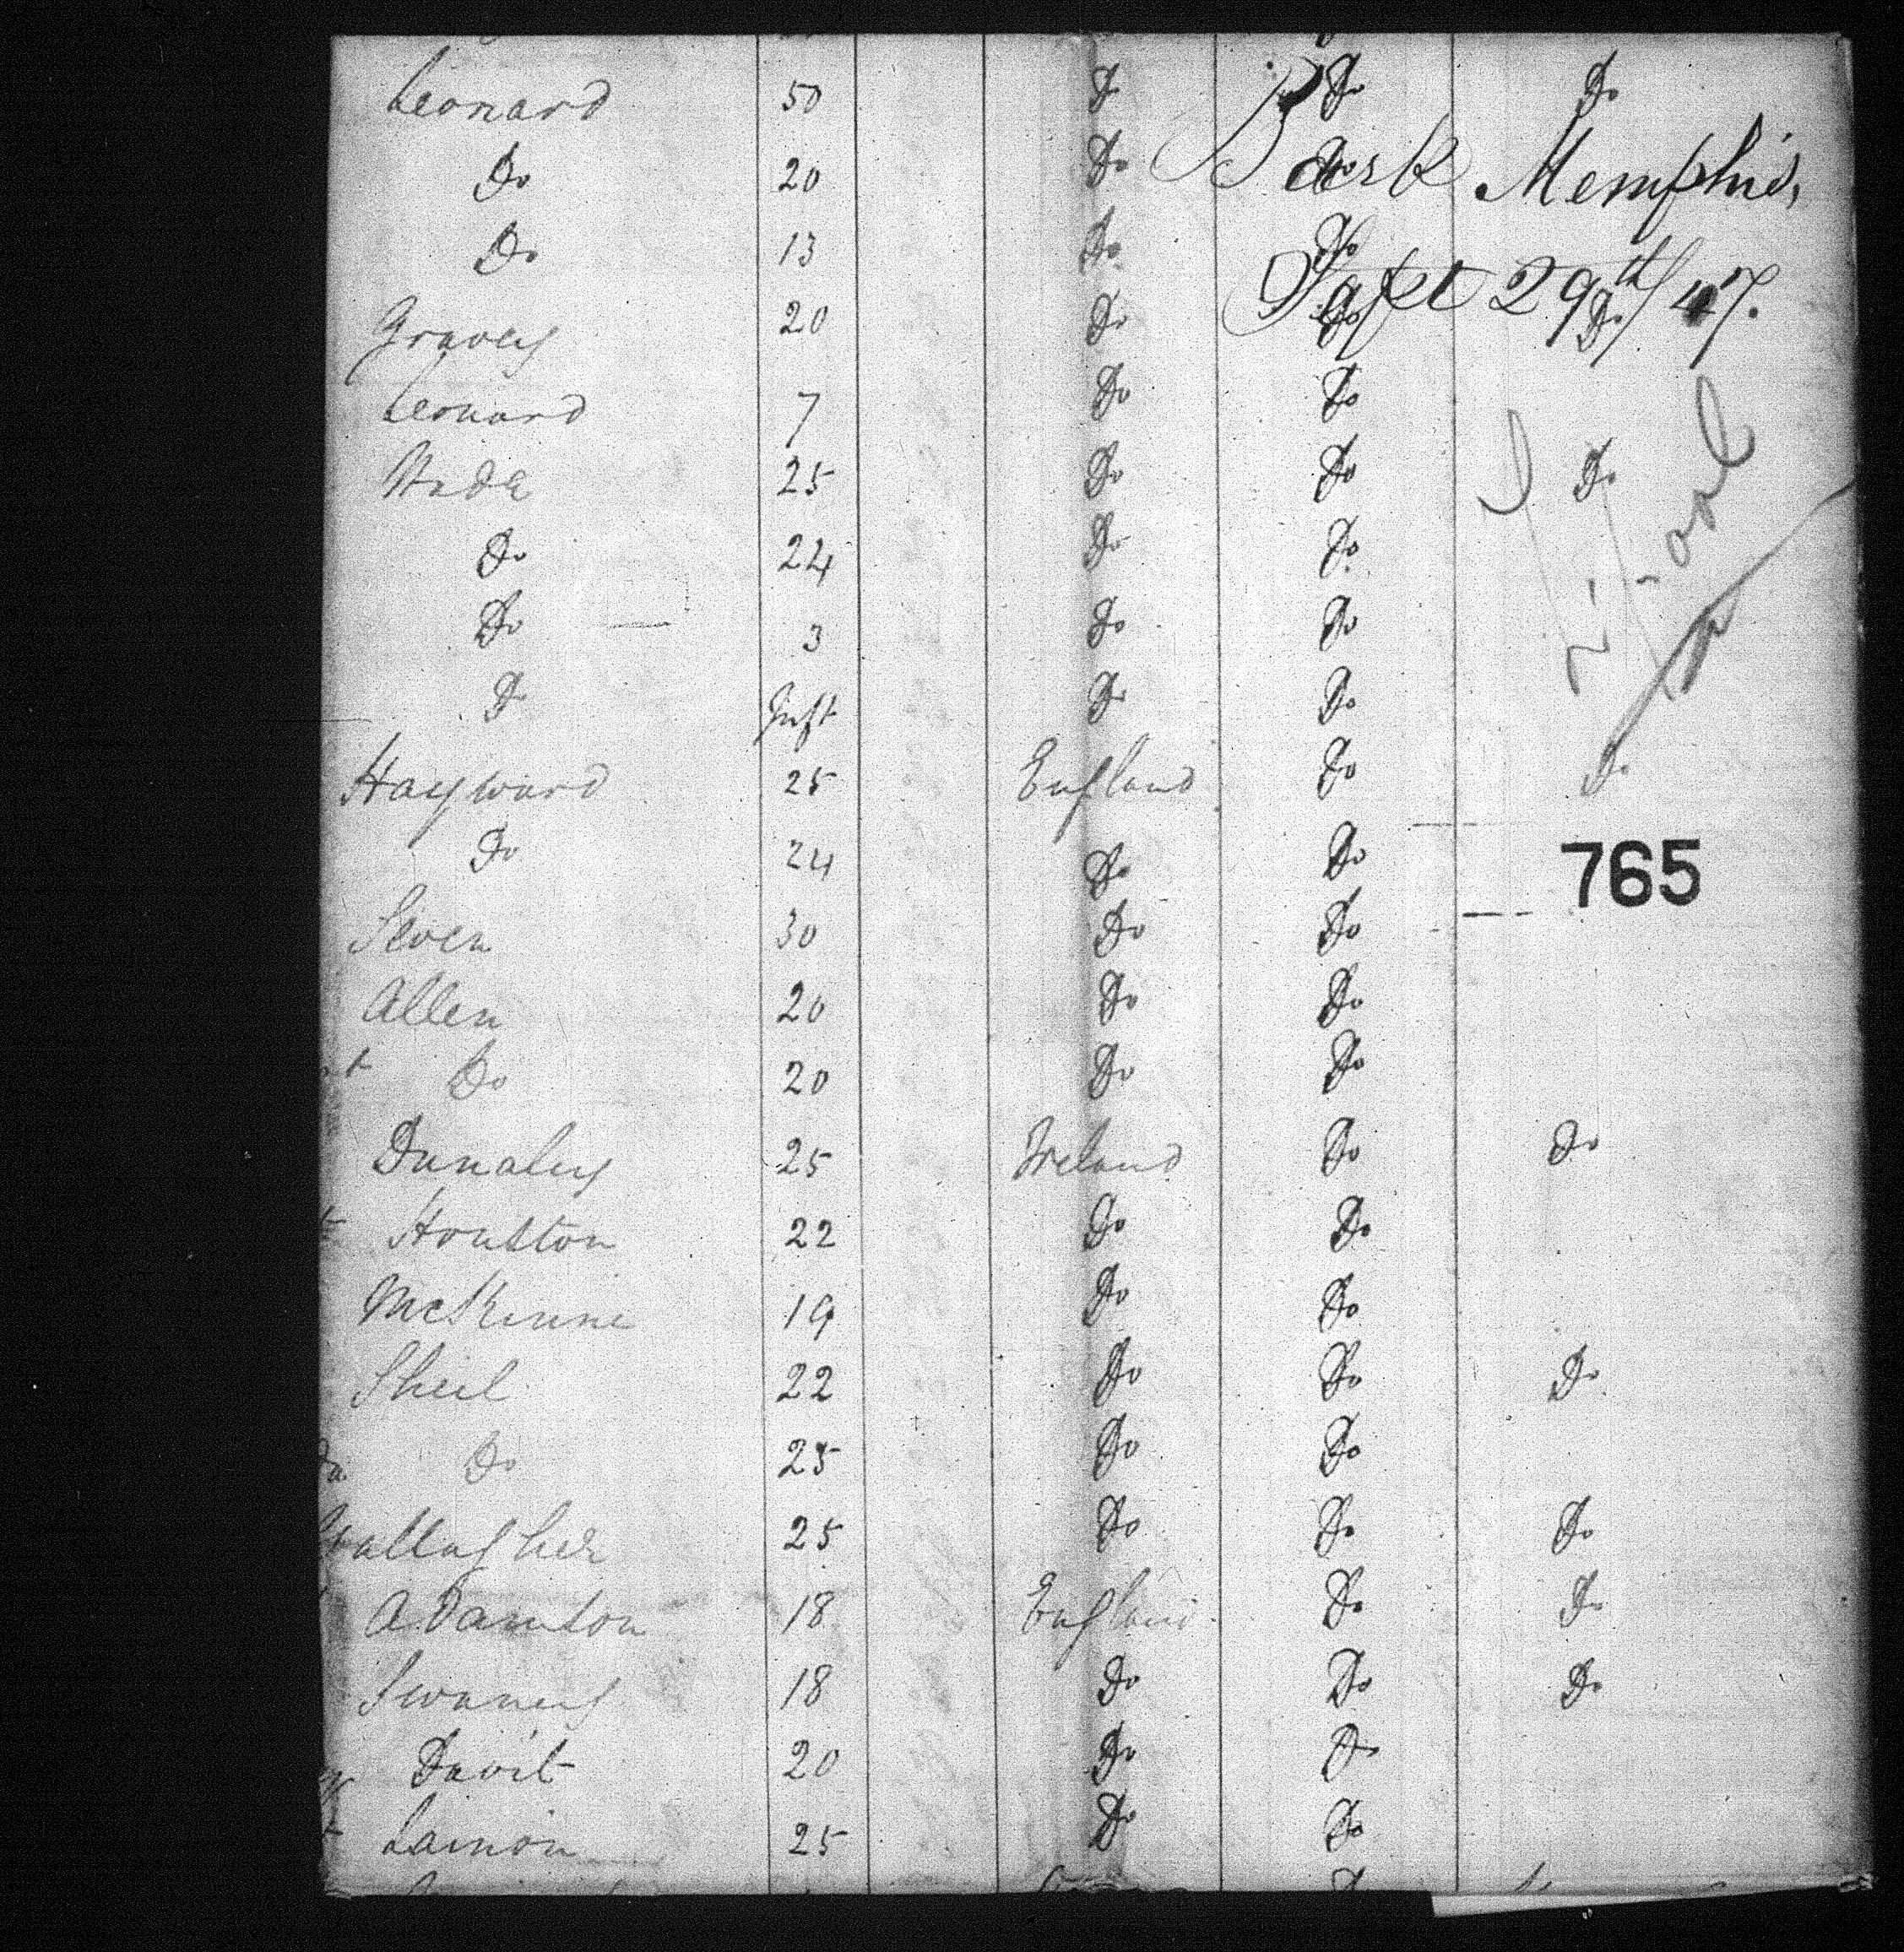 Leonard 50 Do Do Do
Do 20 Do Do
Bark Memphis,
Do 13 Do Do
Sept 29th/47.
Graves 20 Do Do Do
Leonard 7 Do Do
25 Do Do Do
Do 24 Do Do
Do 3 Do Do
Do Inft Do Do
Hayward 25 England Do Do
Do 24 Do Do
765
30 Do Do
Allen 20 Do Do
Do 20 Do Do
25 Ireland Do Do
Houston 22 Do Do
McKinne 19 Do Do
Sheil 22 Do Do Do
Do 25 Do Do
Gallagher 25 Do Do Do
18 England Do Do
18 Do Do Do
Davit 20 Do Do
25 Do Do